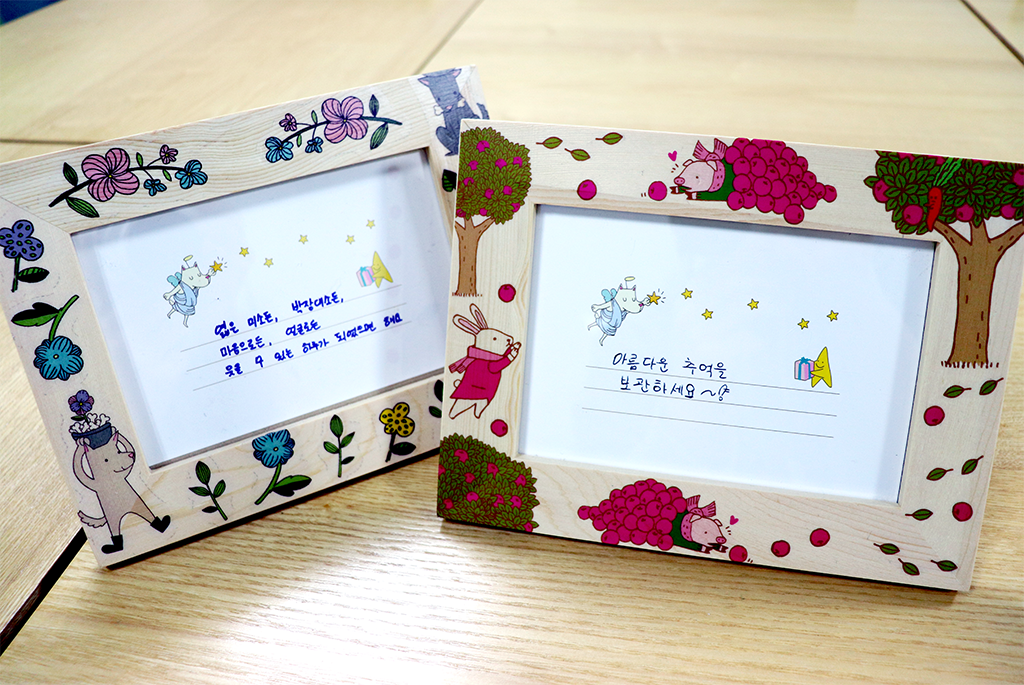 엷은 미소든, 박장대소든,
마음으로든, 얼굴로든
웃을 수 있는 하루가 되었으면 해요
아름다운 추억을
보관하세요~